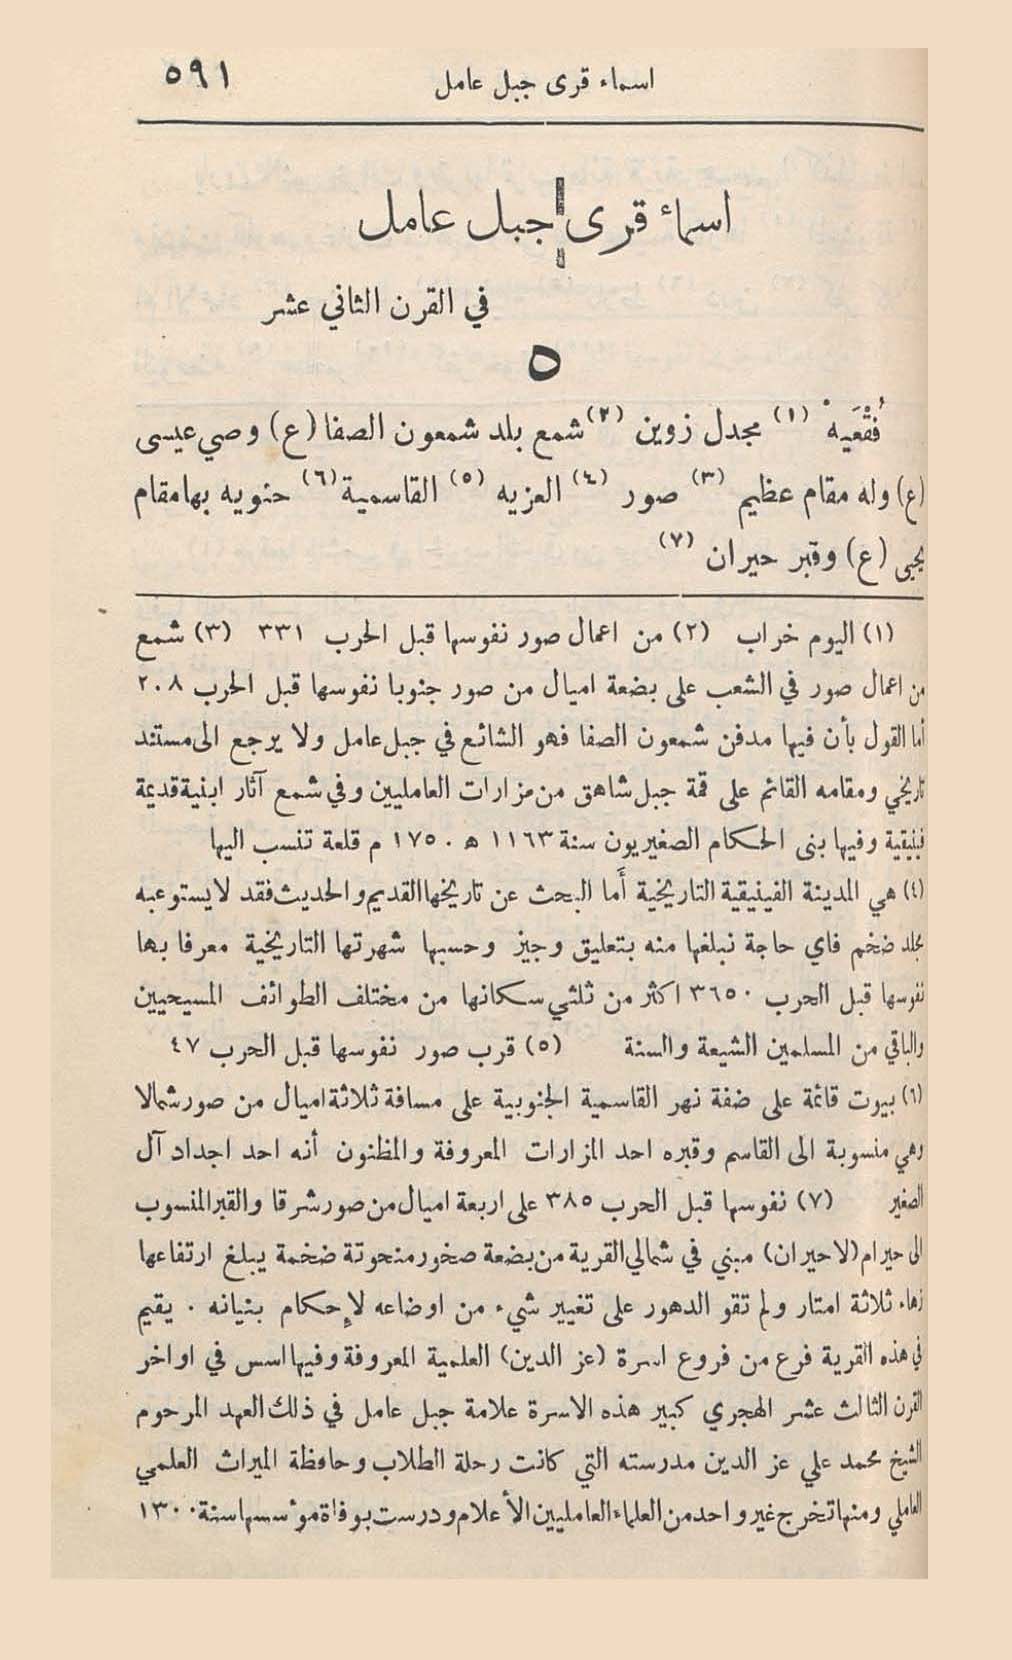 اسماء قرى جبل عامل ٥٩١
اسماء قرى جبل عامل
في القرن الثاني عشر
٥
فُقْعَيهْ (١) مجدل زوين (٢) شمع بلد شمعون الصفا (ع) وصي عيسى
(ع) وله مقام عظيم (٣) صور (٤) العزيه (٥) القاسمية (٦) حنويه بها مقام
يحيى (ع) وقبر حيران (٧)
(١) اليوم خراب (٢) من اعمال صور نفوسها قبل الحرب ٣٣١ (٣) شمع
من اعمال صور في الشعب على بضعة اميال من صور جنوبا نفوسها قبل الحرب ٢٠٨
أما القول بأن فيها مدفن شمعون الصفا فهو الشائع في جبل عامل ولا يرجع الى مستند
تاريخي ومقامه القائم على قمة جبل شاهق من مزارات العامليين وفي شمع آثار ابنية قديمة
فينيقية وفيها بنى الحكام الصغيريون سنة ١١٦٣ ه ١٧٥٠ م قلعة تنسب اليها
(٤) هي المدينة الفينيقية التاريخية أَما البحث عن تاريخها القديم والحديث فقد لا يستوعبه
مجلد ضخم فاي حاجة نبلغها منه بتعليق وجيز وحسبها شهرتها التاريخية معرفا بها
نفوسها قبل الحرب ٣٦٥٠ اكثر من ثلثي سكانها من مختلف الطوائف المسيحيين
والباقي من المسلمين الشيعة والسنة (٥) قرب صور نفوسها قبل الحرب ٤٧
(٦) بيوت قائمة على ضفة نهر القاسمية الجنوبية على مسافة ثلاثة اميال من صور شمالا
وهي منسوبة الى القاسم وقبره احد المزارات المعروفة والمظنون أنه احد اجداد آل
الصغير (٧) نفوسها قبل الحرب ٣٨٥ على اربعة اميال من صور شرقا والقبر المنسوب
الى حيرام (لا حيران) مبني في شمالي القرية من بضعة صخور منحوتة ضخمة يبلغ ارتفاعها
زهاء ثلاثة امتار ولم تقو الدهور على تغيير شيء من اوضاعه لإحكام بنيانه . يقيم
في هذه القرية فرع من فروع اسرة (عز الدين) العلمية المعروفة وفيها اسس في اواخر
القرن الثالث عشر الهجري كبير هذه الاسرة علامة جبل عامل في ذلك العهد المرحوم
الشيخ محمد علي عز الدين مدرسته التي كانت رحلة الطلاب وحافظة الميراث العلمي
العاملي ومنها تخرج غير واحد من العلماء العامليين الأعلام ودرست بوفاة مؤسسها سنة ١٣٠٠